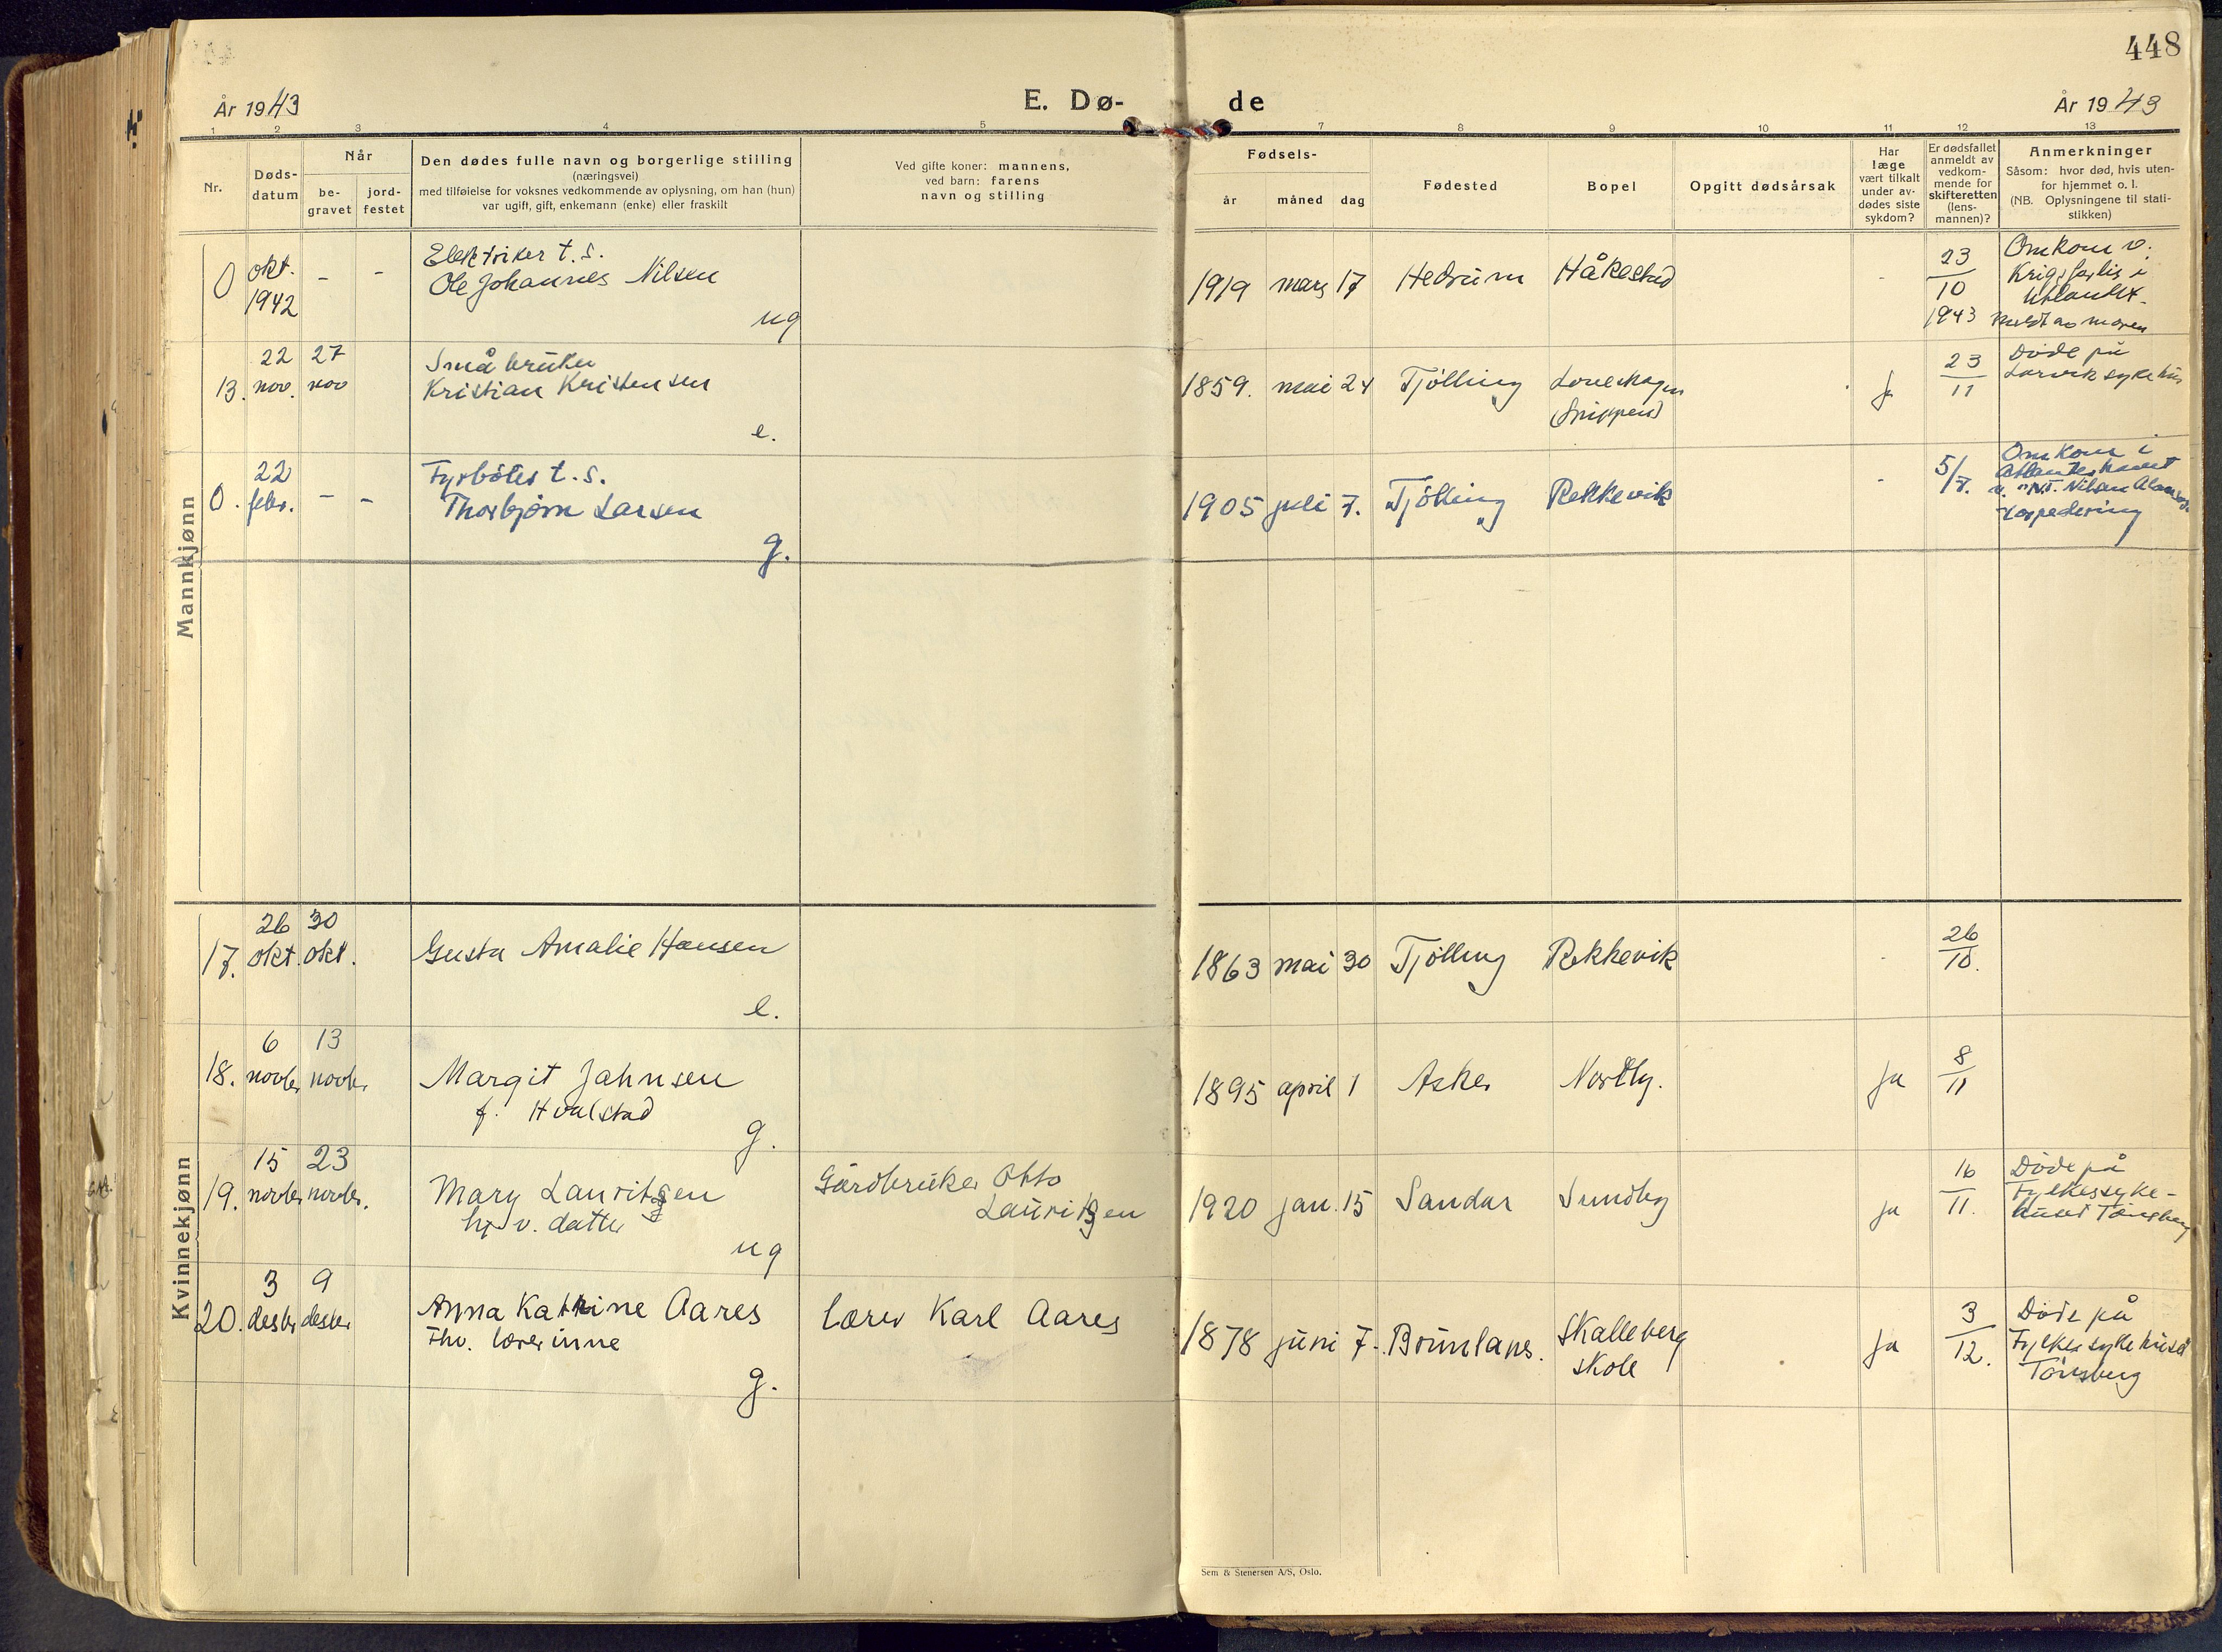 448
År 1943
E. Dø-
de
År 1943
1 2 3 4 5 7 8 9 10 11 12 13
Nr.
Døds-
datum
Når
be-
gravet
jord-
festet
Den dødes fulle navn og borgerlige stilling
(næringsvei)
med tilføielse for voksnes vedkommende av oplysning, om han (hun)
var ugift, gift, enkemann (enke) eller fraskilt
Ved gifte koner: mannens,
ved barn: farens
navn og stilling
Fødsels-
år måned dag
Fødested
Bopel
Opgitt dødsårsak
Har
læge
vært tilkalt
under av-
dødes siste
sykdom?
Er dødsfallet
anmeldt av
vedkom-
mende for
skifteretten
(lens-
mannen)?
Anmerkninger
Såsom: hvor død, hvis uten-
for hjemmet o. l.
(NB. Oplysningene til stati-
stikken)
Mannkjønn
0
okt.
1942
- -
Elektriker t. s.
Ole Johannes Nilsen
ug
1919 mars 17 Hedrum Håkestad
-
23
10
1943
Omkom v.
Krigsforlis i
Utlandet.
meldt av moren
13.
22
nov.
27
nov
Småbruker
Kristian Kristensen
e.
1859. mai 24 Tjølling
(Snippen)
ja
23
11
Døde på
Larvik sykehus
0.
22
febr.
- -
Fyrbøter t. s.
Thorbjørn Larsen
g.
1905 juli 7. Tjølling Rekkevik
-
5/7.
Omkom i
Atlanterhavet
v. "N.T. Nilsen Alonso"s
torpedering
Kvinnekjønn
17.
26
okt.
30
okt.
Gusta Amalie Hansen
e.
1863 mai 30 Tjølling Rekkevik
-
26
10.
18.
6
novbr
13
novbr
Margit Jahnsen
f. Hvalstad
g.
1895 april 1 Asker Nordby.
ja
8
11
19.
15
novbr
23
novbr.
Mary Lauritsen
hjv. datter
ug
Gårdbruker Otto
Lauritsen
1920 jan. 15 Sandar Sundby
ja
16
11.
Døde på
Fylkessyke-
huset Tønsberg
20.
3
desbr
9
desbr
Anna Katrine Aares
fhv. lærerinne
g.
lærer Karl Aares
1878 juni 7. Brunlanes. Skalleberg
skole
ja
3
12.
Døde på
Fylkessykehuset
Tønsberg
Sem & Stenersen A/S, Oslo.